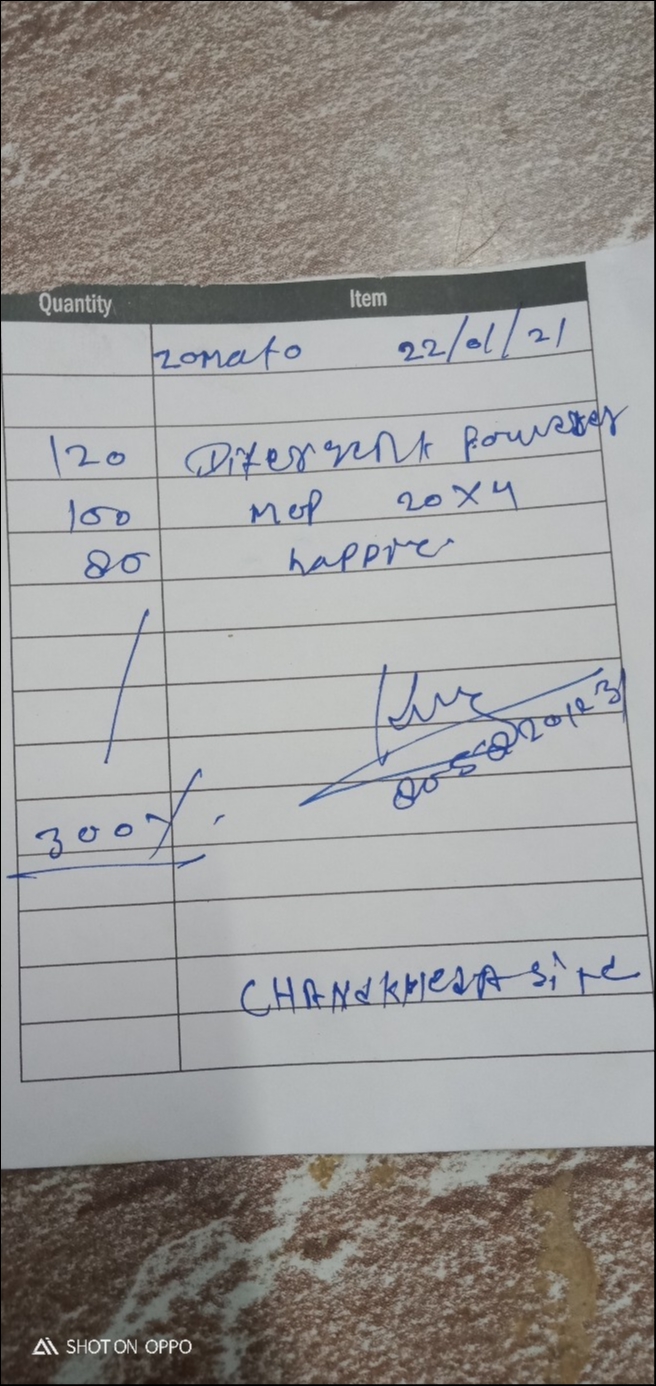 Quantity Item
zomato 22/01/21
120 Ditergent Powder
100 Mop 20X4
80 happic
300/.
8058220123
CHANdKHEDA Site
SHOT ON OPPO